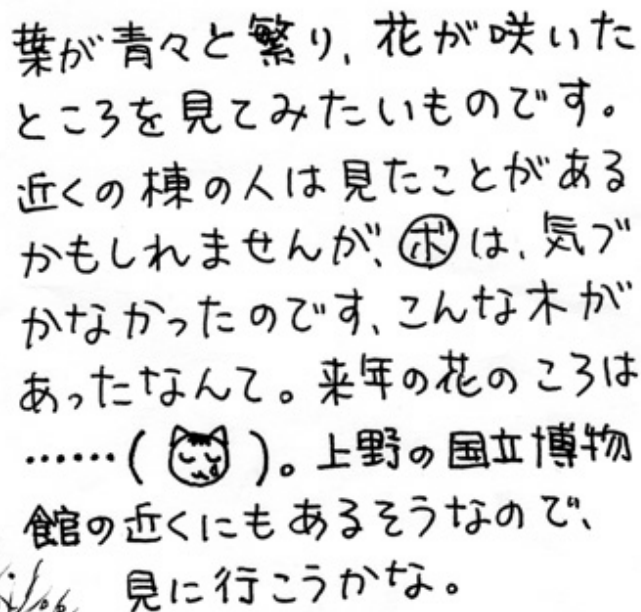 葉が青々と繁り、花が咲いた
ところを見てみたいものです。
近くの棟の人は見たことがある
かもしれませんが、ボは、気づ
かなかったのです、こんな木が
あったなんて。来年の花のころは
……( )。上野の国立博物
館の近くにもあるそうなので、
見に行こうかな。